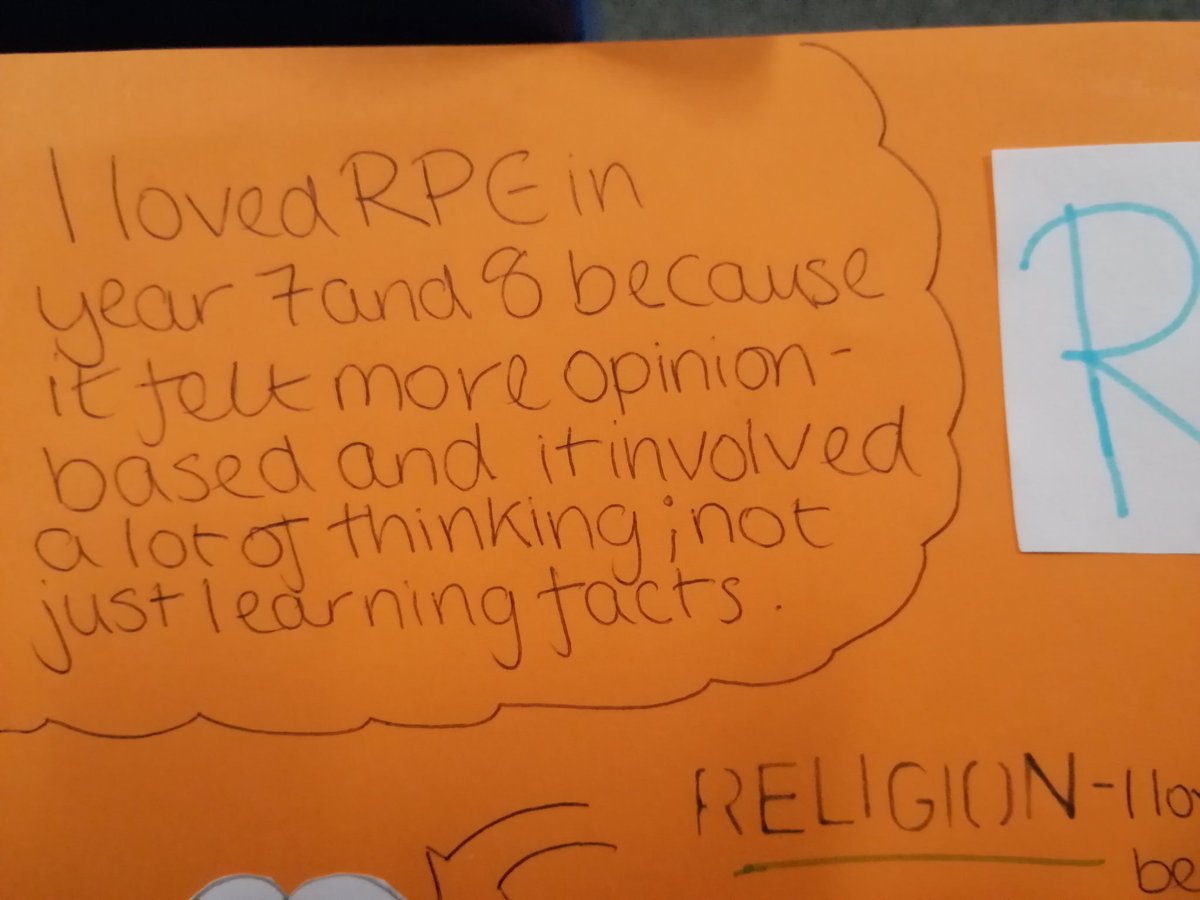 I loved RPE in
year 7 and 8 because
it felt more opinion-
based and it involved
a lot of thinking; not
just learning facts.
R
RELIGION - I lo
be